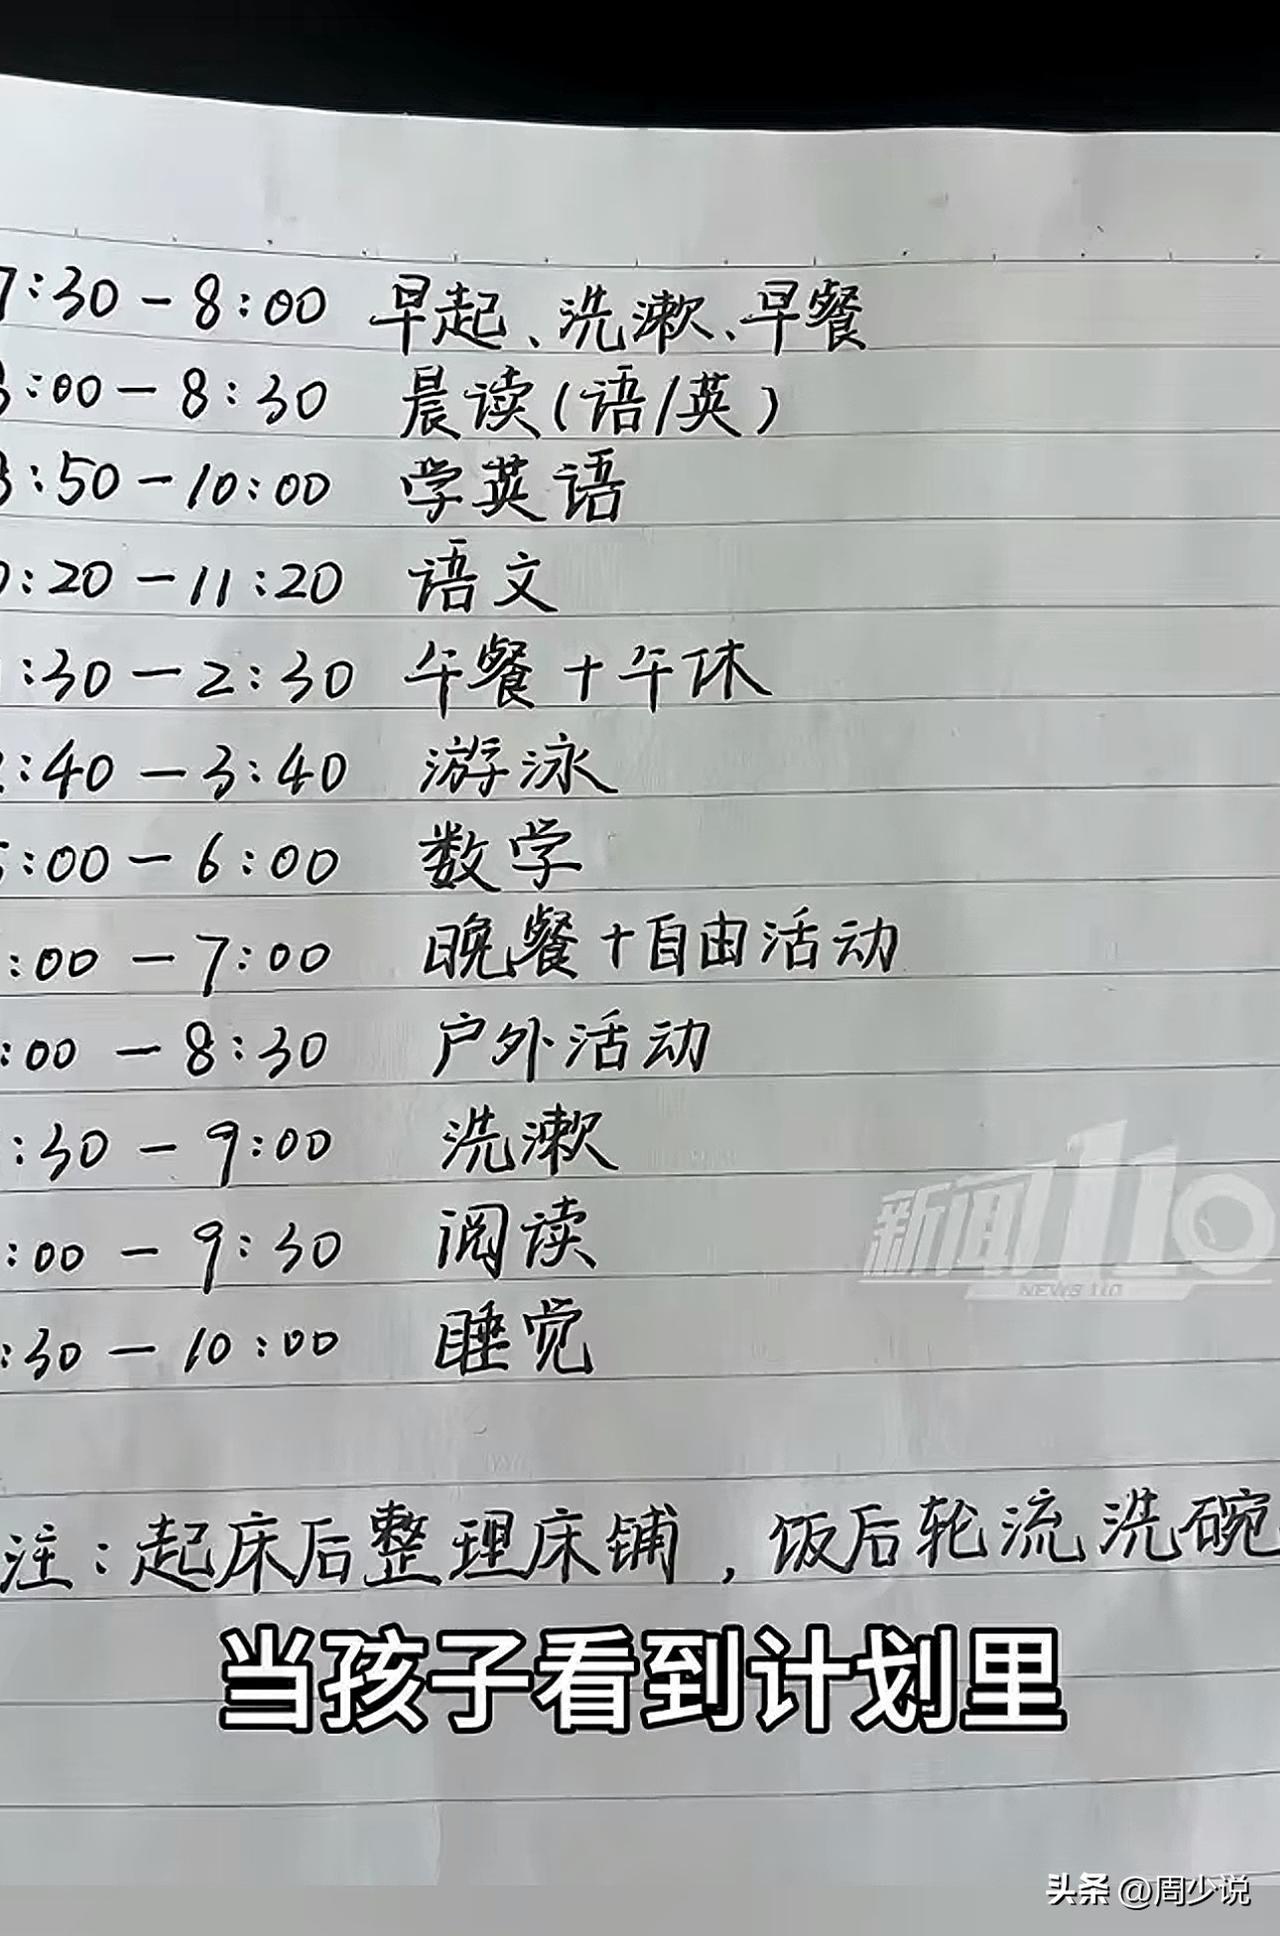 7:30-8:00 早起、洗漱、早餐
8:00-8:30 晨读(语/英)
8:50-10:00 学英语
0:20-11:20 语文
:30-2:30 午餐+午休
2:40-3:40 游泳
5:00-6:00 数学
:00-7:00 晚餐+自由活动
:00-8:30 户外活动
:30-9:00 洗漱
:00-9:30 阅读
:30-10:00 睡觉
新闻110
NEWS 110
注:起床后整理床铺,饭后轮流洗碗
当孩子看到计划里
头条 @周少说